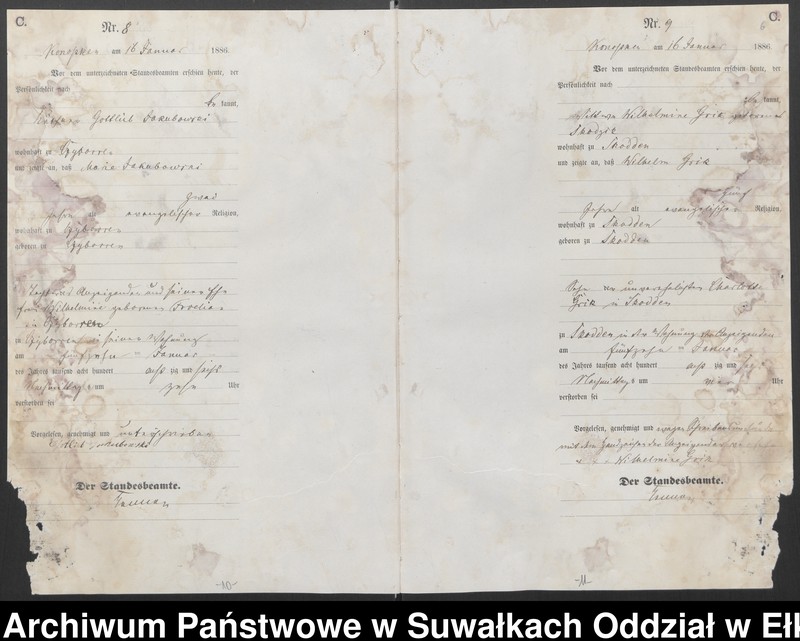 C.
Nr. 8
Konopken am 16 Januar 1886.
Vor dem unterzeichneten Standesbeamten erschien heute, der
Persönlichkeit nach
be kannt,
Gottlieb Jakubowski
wohnhaft zu Gyborren
und zeigte an, daß Marie Jakubowski
zwei
Jahre alt evangelischer Religion,
wohnhaft zu Gyborren
geboren zu Gyborren
Tochter des Anzeigenden und seiner Ehe
frau Wilhelmine geborenen
in Gyborren
zu Gyborren in seiner Wohnung
am fünfzehn ten Januar
des Jahres tausend acht hundert acht zig und sechs
Nachmittags um zehn Uhr
verstorben sei
Vorgelesen, genehmigt und unterschrieben
Der Standesbeamte.
C.
Nr. 9
6
Konopken am 16 Januar 1886.
Vor dem unterzeichneten Standesbeamten erschien heute, der
Persönlichkeit nach
be kannt,
Wittwe Wilhelmine Grik
wohnhaft zu Skodden
und zeigte an, daß Wilhelm Grik
fünf
Jahre alt evangelischer Religion,
wohnhaft zu Skodden
geboren zu Skodden
Sohn der unverehelichten Charlotte
Grik in Skodden
zu Skodden in der Wohnung der Anzeigenden
am fünfzehn ten Januar
des Jahres tausend acht hundert acht zig und sechs
Nachmittags um vier Uhr
verstorben sei
Vorgelesen, genehmigt und wegen Schreibensunkunde
mit dem Handzeichen der Anzeigenden versehen
+ + + Wilhelmine Grik
Der Standesbeamte.
-10-
-11-
Archiwum Państwowe w Suwałkach Oddział w Eł